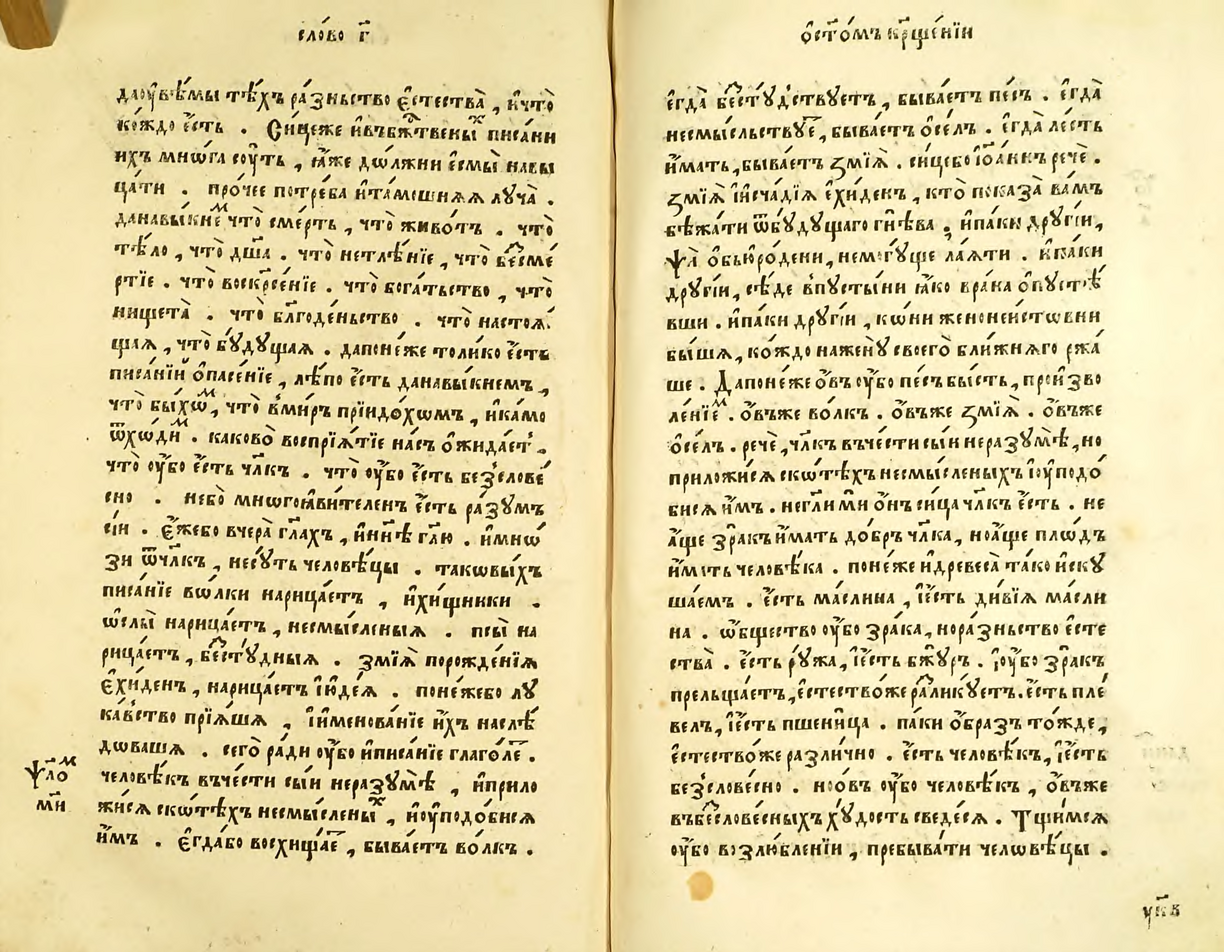 сло́во г҃
даоувѣ́мы тѣ́хъ ра́зньство є҆стества̀ , и҆что̀
кождо є҆́сть . Си́цеже и҆въбж҃твены́х писа́ни
ихъ мнѡ́га сꙋ́ть , ꙗ҆́же дѡ́лжни є҆смы̀ навы
ца́ти . про́чее потре́ба и҆та́мошнѧѧ лꙋча̀ .
данавы́кнеⷨ что̀ сме́рть , что̀ живо́тъ . что̀
тѣ́ло , что̀ дш҃а̀ . что̀ нетлѣ́нїе , что̀ бесⷭ҇ме́
ртїе . что̀ воскрⷭ҇е́нїе . что̀ бога́тьство , что̀
нищета̀ . что̀ бл҃годе́ньство . что̀ настоѧ́
щаѧ , что̀ бꙋ́дꙋщаѧ . дапоне́же толи́ко є҆́сть
писа́нїй ѻ҆пасе́нїе , лѣ́по є҆́сть данавы́кнемъ ,
что̀ бы́хѡⷨ , что̀ в̾ми́ръ прїидо́хомъ , и҆ка́мо
ѿхо́диⷨ . каково̀ воспрїѧ́тїе на́съ ѻ҆жида́етъ .
что̀ оу҆́бо є҆́сть чл҃къ . что̀ оу҆́бо є҆́сть безслове́
сно . не́бо мнѡгоꙗ҆ви́теленъ є҆́сть ра́зꙋмъ
сі́и . Є҆́жебо вчера̀ гл҃ахъ , и҆ ны́нѣ гл҃ю . и҆ мнѡ́
зи ѿчл҃къ , несꙋ́ть человѣ́цы . такѡвы́хъ
писа́нїе вѡ́лки нарица́етъ , и҆хи́щники .
ѡ҆слы̀ нарица́етъ , несмы́сленыѧ . псы̀ на
рица́етъ , бесⷭ҇тꙋ́дныѧ . змїѧ̀ порожде́нїѧ
є҆хи́денъ , нарица́етъ і҆ю҆де́ѧ . поне́жебо лꙋ
ка́вство прїѧ́шѧ , і҆и҆менова́нїе и҆́хъ наслѣ́
дѡвашѧ . сего̀ ра́ди оу҆́бо и҆писа́нїе глаго́леⷮ .
человѣ́къ въче́сти сы́и неразꙋмѣ̀ , и҆прило
жи́сѧ скѡтѣ́хъ несмы́сленыⷯ , и҆оу҆подо́бисѧ
и҆́мъ . Є҆гда́бо восхища́еⷮ , быва́етъ во́лкъ .
ѱло́ⷨ
м҃и
ѻ҆ст҃о́мъ крⷭ҇ще́нїи
є҆гда̀ бесⷭ҇тꙋ́дствꙋетъ , быва́етъ пе́съ . є҆гда̀
несмы́сльствꙋеⷮ , быва́етъ ѻ҆се́лъ . є҆гда̀ ле́сть
и҆́мать , быва́етъ ѕмїѧ̀ . си́цебо і҆ѡа́ннъ речѐ .
ѕмїѧ̀ і҆и҆сча́дїѧ є҆хи́денъ , кто̀ показа̀ ва́мъ
бѣжа́ти ѿбꙋ́дꙋщаго гнѣ́ва , и҆па́ки дрꙋгі́и ,
Ѱѝ ѻ҆бью҆ро́дени , немогꙋ́ще ла́ѧти . и҆па́ки
дрꙋгі́и , сѣ́де в̾пꙋсты́ни ꙗ҆́ко вра́на ѻ҆пꙋстѣ́
вши . и҆па́ки дрꙋгі́и , ко́ни женонеи́стѡвни
бы́шѧ , ко́ждо наженꙋ̀ своего̀ бли́жнѧго ржа́
ше . Дапоне́же ѻ҆́въ оу҆́бо пе́съ бы́сть , произво
ле́нїеⷨ . ѻ҆́въже во́лкъ . ѻ҆́въже ѕмїѧ̀ . ѻ҆́въже
ѻ҆се́лъ . речѐ , чл҃къ въче́сти сы́и неразꙋмѣ̀ , но
приложи́сѧ скѡтѣ́хъ несмы́сленыхъ і҆оу҆подо́
бисѧ и҆́мъ . негли́ ми ѻ҆́нъ си́ца чл҃къ є҆́сть . не
а҆́ще зра́къ и҆́мать до́бръ чл҃ка , ноа҆́ще пло́дъ
и҆́мать человѣ́ка . поне́же и҆древеса̀ та́ко и҆скꙋ
ша́емъ . є҆́сть ма́слина , і҆є҆́сть ди́вїѧ ма́сли
на . ѡ҆́бщество оу҆́бо зра́ка , нора́зньство є҆сте
ства̀ . є҆́сть рꙋ́жа , і҆є҆́сть бж҃ꙋръ . і҆оу҆́бо зра́къ
прельща́етъ , є҆стество́же ра́зликꙋетъ . є҆́сть пле́
велъ , і҆є҆́сть пшени́ца . па́ки ѻ҆́бразъ то́жде ,
є҆стество́же разли́чно . є҆́сть человѣ́къ , і҆є҆́сть
безслове́сно . ноѻ҆́въ оу҆́бо человѣ́къ , ѻ҆́въже
въбесⷭ҇лове́сныхъ хꙋ́дость сведе́сѧ . Тщи́мсѧ
оу҆́бо возлю́бленїи , пребыва́ти челѡвѣ́цы .
ук҃в